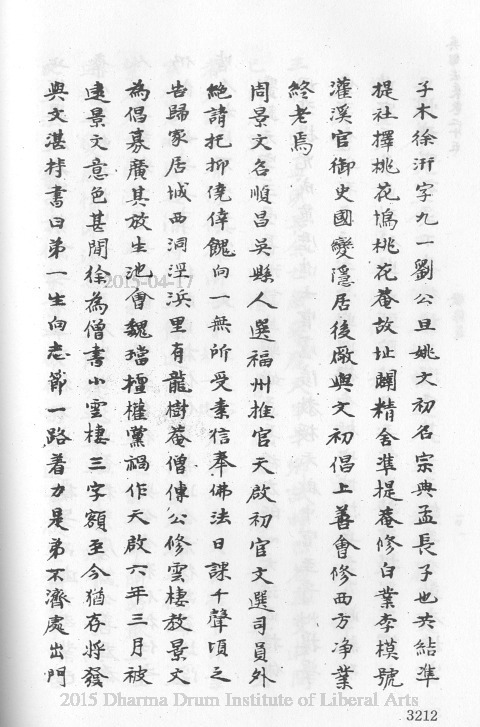 子木徐汧字九一劉公旦姚文初名宗典孟長子也共結準
提社擇桃花塢桃花菴故址闢精舍準提菴修白業李模號
灌溪官御史國變隱居後廠與文初倡上善會修西方淨業
終老焉
周景文名順昌吳縣人選福州推官天啟初官文選司員外
絕請托抑僥倖餽向一無所受素信奉佛法日課千聲頃之
告歸家居城西洞涇浜里有龍樹菴僧傳公修雲棲教景文
為倡募廣其放生池會魏璫擅權黨禍作天啟六年三月被
逮景文意色甚閒徐為僧書小雲棲三字額至今猶存將發
與文湛持書曰弟一生向志節一路着力是弟不濟處出門
2015-04-17
2015 Dharma Drum Institute of Liberal Arts
3212